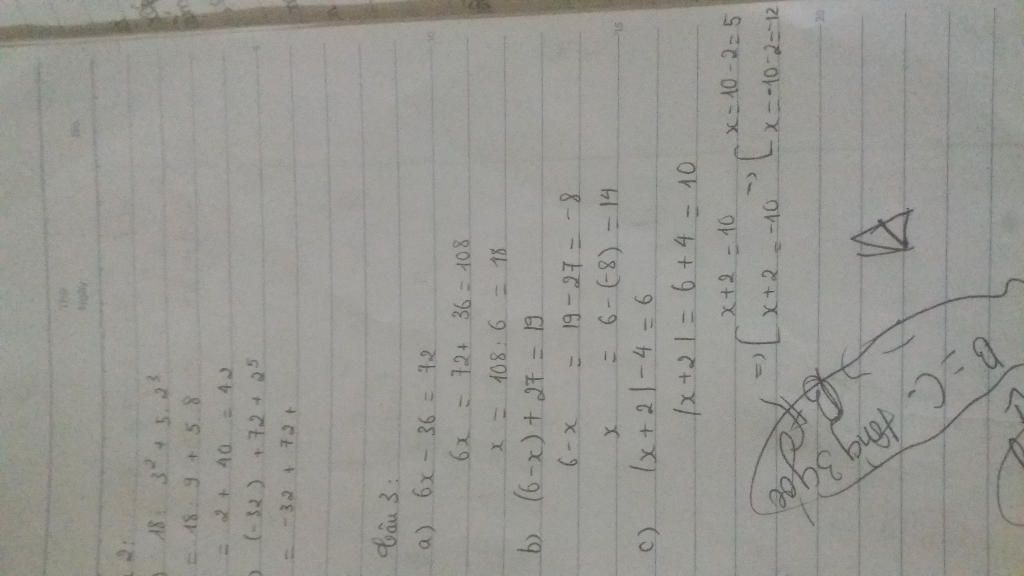 2:
18 : 3² + 5.2³
= 18 : 9 + 5.8
= 2 + 40 = 42
(-32) + 72 + 2⁵
= -32 + 72 +
Câu 3:
a) 6x - 36 = 72
6x = 72 + 36 = 108
x = 108 : 6 = 18
b) (6-x) + 27 = 19
6-x = 19 - 27 = -8
x = 6 - (-8) = 14
c) |x + 2| - 4 = 6
|x + 2| = 6 + 4 = 10
=> [ x+2 = 10 => [ x = 10 - 2 = 5
x+2 = -10 x = -10 - 2 = -12